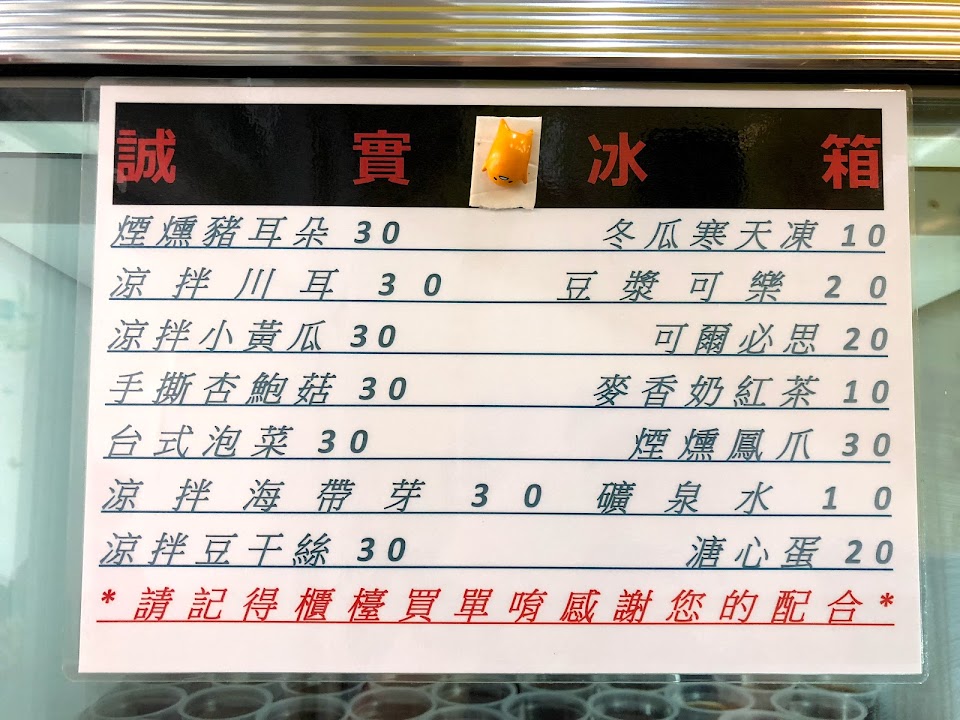 誠實冰箱
煙燻豬耳朵 30 冬瓜寒天凍 10
涼拌川耳 30 豆漿可樂 20
涼拌小黃瓜 30 可爾必思 20
手撕杏鮑菇 30 麥香奶紅茶 10
台式泡菜 30 煙燻鳳爪 30
涼拌海帶芽 30 礦泉水 10
涼拌豆干絲 30 溏心蛋 20
*請記得櫃檯買單唷感謝您的配合*